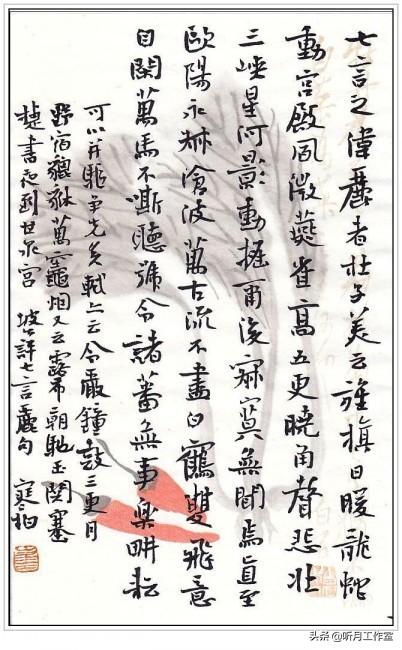 七言之偉麗者杜子美云旌旗日暖龍蛇
動宮殿風微燕雀高五更曉角聲悲壯
三峽星河影動搖爾後寂寞無聞焉直至
歐陽永叔滄波萬古流不盡白鶴雙飛意
自閑萬馬不嘶聽號令諸蕃無事樂耕耘
可以并驅爭先矣軾亦云令嚴鐘鼓三更月
野宿貔貅萬竈烟又云露布朝馳玉關塞
捷書夜到甘泉宮 坡評七言麗句 寒柏
头条 @听月工作室